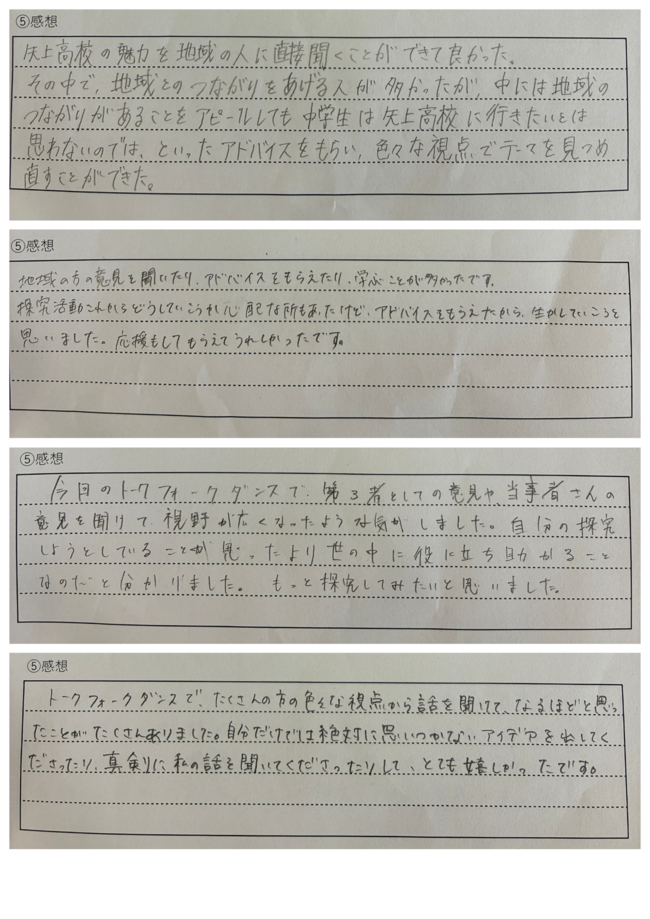 ⑤感想
矢上高校の魅力を地域の人に直接聞くことができて良かった。
その中で、地域とのつながりをあげる人が多かったが、中には地域の
つながりがあることをアピールしても中学生は矢上高校に行きたいとは
思わないのでは、といったアドバイスをもらい、色々な視点でテーマを見つめ
直すことができた。
⑤感想
地域の方の意見を聞いたり、アドバイスをもらえたり、学ぶことが多かったです。
探究活動これからどうしていこうか心配な所もあったけど、アドバイスをもらえたから、生かしていこうと
思いました。応援もしてもらえてうれしかったです。
⑤感想
今日のトークフォークダンスで、第3者としての意見や、当事者さんの
意見を聞けて視野が広くなったような気がしました。自分の探究
しようとしていることが思ったより世の中に役に立ち助かること
なのだと分かりました。もっと探究してみたいと思いました。
⑤感想
トークフォークダンスで、たくさんの方の色々な視点から話を聞けて、なるほどと思っ
たことがたくさんありました。自分だけでは絶対に思いつかないアイデアを出してく
ださったり、真剣に私の話を聞いてくださったりして、とても嬉しかったです。